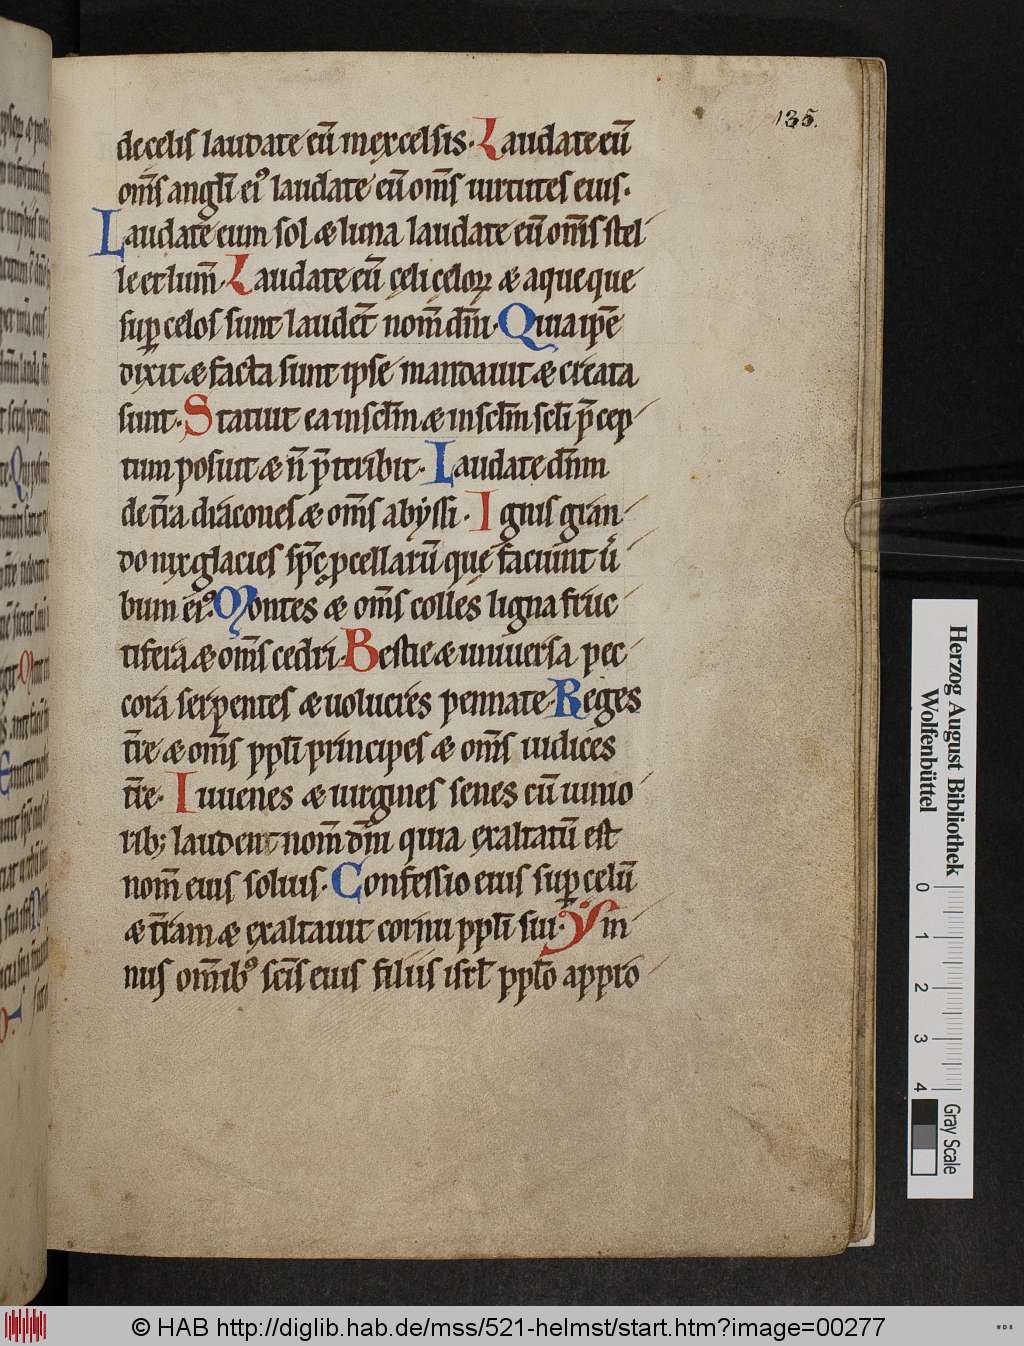 135.
de celis laudate eū in excelsis. Laudate eū
om̅s angl̅i eiꝰ laudate eū om̅s uirtutes eius.
Laudate eum sol æ luna laudate eū om̅s stel
le et lum̅. Laudate eū celi celoꝝ æ aque que
sup̱ celos sunt laudēt nom̅ dn̅i. Quia ip̅e
dixit æ facta sunt ipse mandauit æ creata
sunt. Statuit ea in sclm̅ æ in sclm̅ scl̅i p̅cep
tum posuit æ n̅ p̅teribit. Laudate dn̅m
de t̅ra dracones æ om̅s abyssi. Ignis gran
do nix glacies sp̅c ꝓcellarū que faciunt u̅
bum eiꝰ. Montes æ om̅s colles ligna fruc
tifera æ om̅s cedri. Bestie æ uniuersa pec
cora serpentes æ uolucres pennate. Reges
t̅re æ om̅s ppl̅i principes æ om̅s iudices
t̅re. Iuuenes æ uirgines senes cū iunio
rib; laudent nom̅ dn̅i quia exaltatū est
nom̅ eius solius. Confessio eius sup̱ celū
æ t̅ram æ exaltauit cornu ppl̅i sui. Ym
nus omnibꝰ sc̅is eius filiis isrl̅ ppl̅o appro
Herzog August Bibliothek
Wolfenbüttel
0 1 2 3 4
Gray Scale
© HAB http://diglib.hab.de/mss/521-helmst/start.htm?image=00277